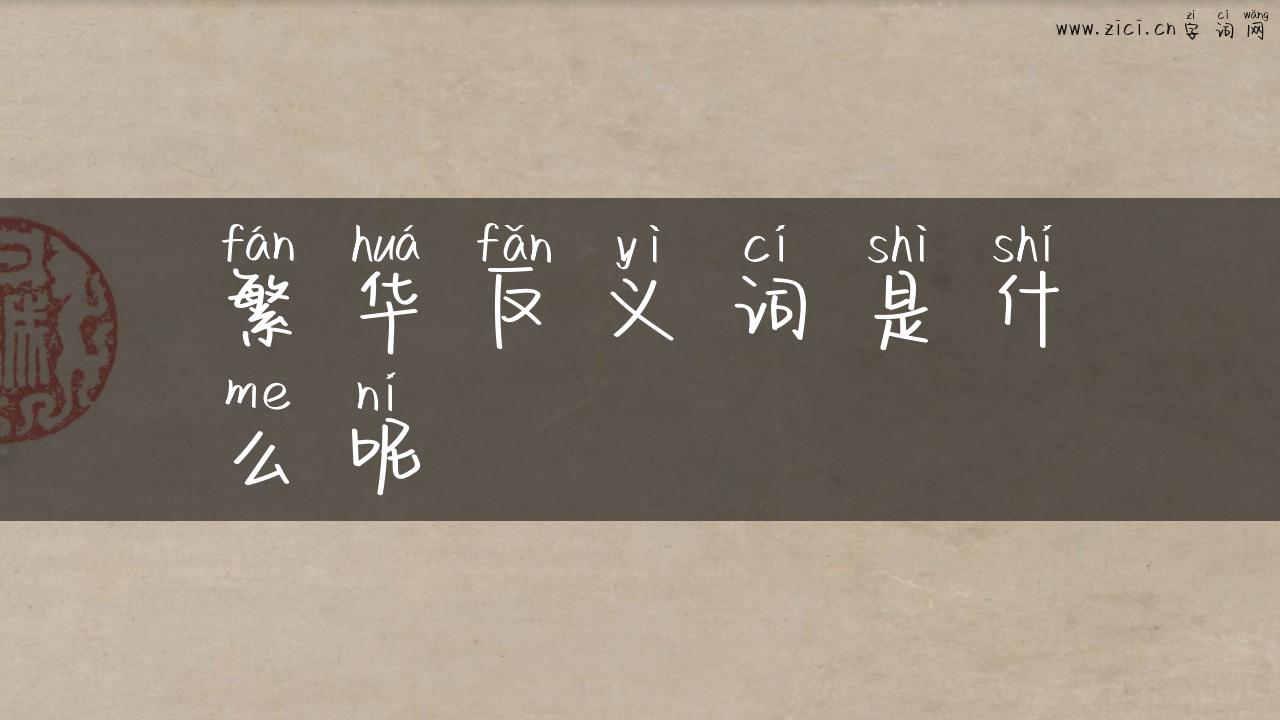 zì cí wǎng
www.zici.cn 字词网
fán huá fǎn yì cí shì shí
繁华反义词是什
me ní
么呢